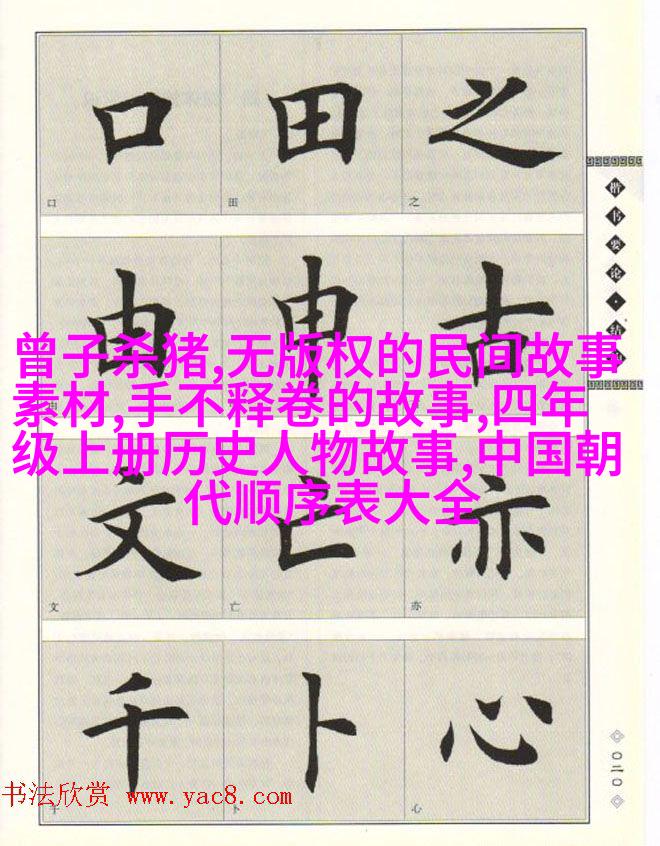 口 田 之
口 田 之
由 甲 古
曾子杀猪,无版权的民间故事
素材,手不释卷的故事,四年
级上册历史人物故事,中国朝
代顺序表大全
文 亡 亦
文 亡 亦
千 卜 心
千 卜 心
楷书要论·结
〇二〇
书法欣赏 www.yac8.com